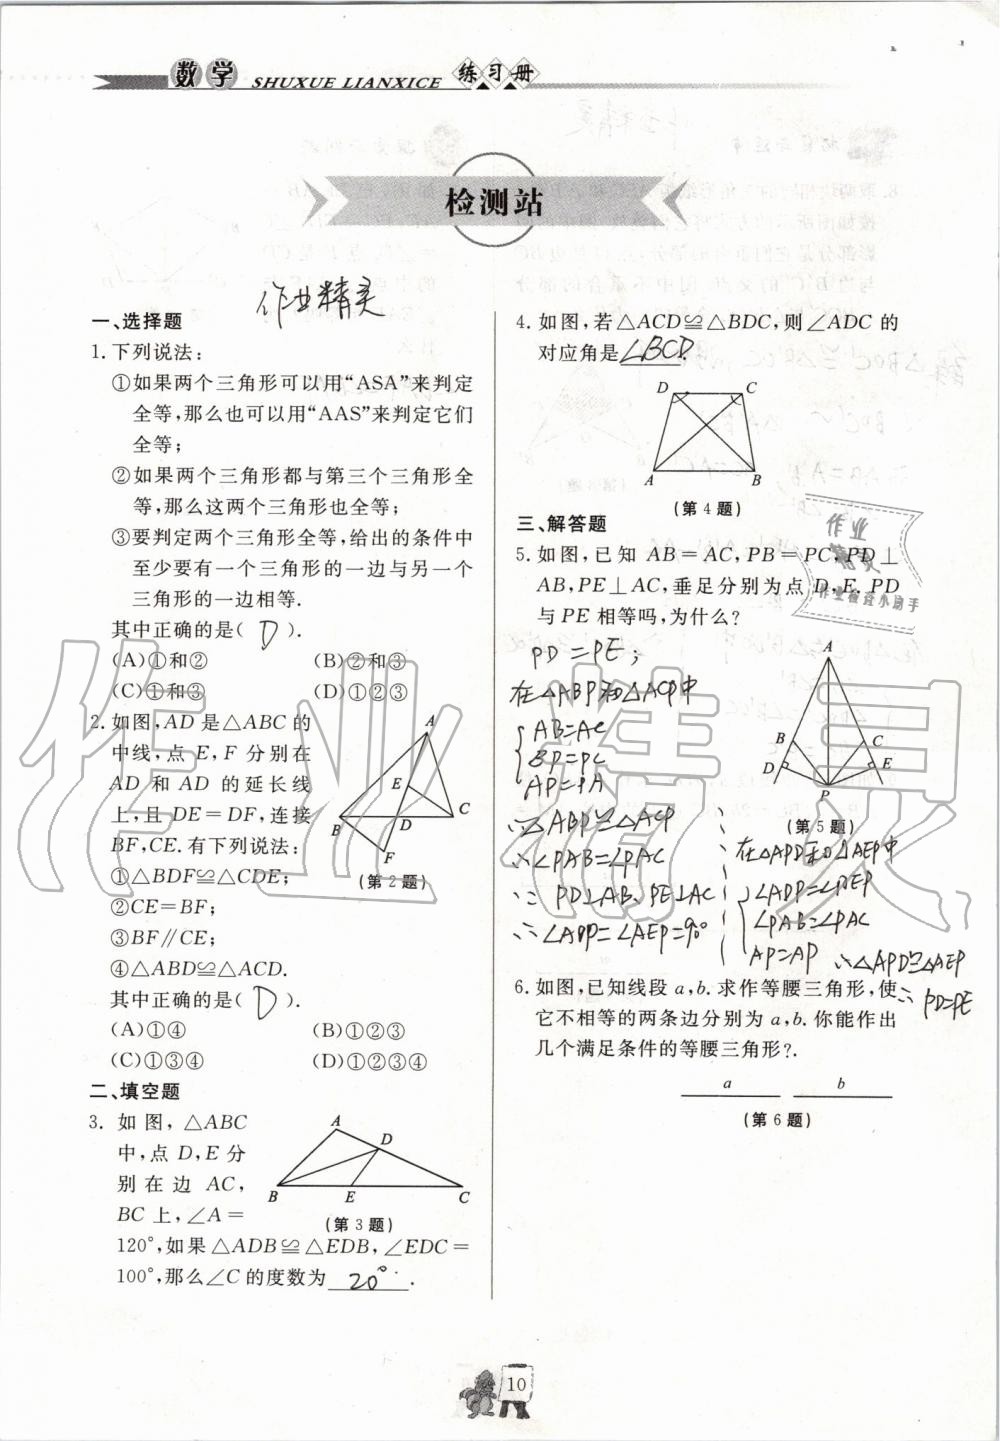 数学 SHUXUE LIANXICE 练习册
检测站
作业精灵
一、选择题
1.下列说法：
①如果两个三角形可以用“ASA”来判定
全等,那么也可以用“AAS”来判定它们
全等；
②如果两个三角形都与第三个三角形全
等,那么这两个三角形也全等；
③要判定两个三角形全等,给出的条件中
至少要有一个三角形的一边与另一个
三角形的一边相等.
其中正确的是( D ).
(A)①和② (B)②和③
(C)①和③ (D)①②③
2.如图,AD 是△ABC 的
中线,点 E,F 分别在
AD 和 AD 的延长线
上,且 DE=DF,连接
BF,CE.有下列说法：
①△BDF≌△CDE；
②CE=BF；
③BF∥CE；
④△ABD≌△ACD.
其中正确的是( D ).
(A)①④ (B)①②③
(C)①③④ (D)①②③④
A
E
B D C
F
(第2题)
二、填空题
3. 如图,△ABC
中,点 D,E 分
别在边 AC,
BC上,∠A=
120°,如果△ADB≌△EDB,∠EDC=
100°,那么∠C的度数为 20° .
A
D
B E C
(第3题)
4. 如图,若△ACD≌△BDC,则∠ADC的
对应角是∠BCD.
D C
A B
(第4题)
三、解答题
5. 如图,已知 AB=AC,PB=PC,PD⊥
AB,PE⊥AC,垂足分别为点 D、E. PD
与PE 相等吗,为什么?
PD=PE；
在△ABP和△ACP中
AB=AC
BP=PC
AP=PA
∴△ABP≌△ACP
∴∠PAB=∠PAC
∵ PD⊥AB、PE⊥AC
∴∠ADP=∠AEP=90°
A
B C
D E
P
(第5题)
在△APD和△AEP中
∠ADP=∠AEP
∠PAB=∠PAC
AP=AP ∴△APD≌△AEP
∴PD=PE
6. 如图,已知线段 a,b.求作等腰三角形,使
它不相等的两条边分别为a,b.你能作出
几个满足条件的等腰三角形?.
a b
(第6题)
作业
精灵
作业检查小助手
作业精灵
10